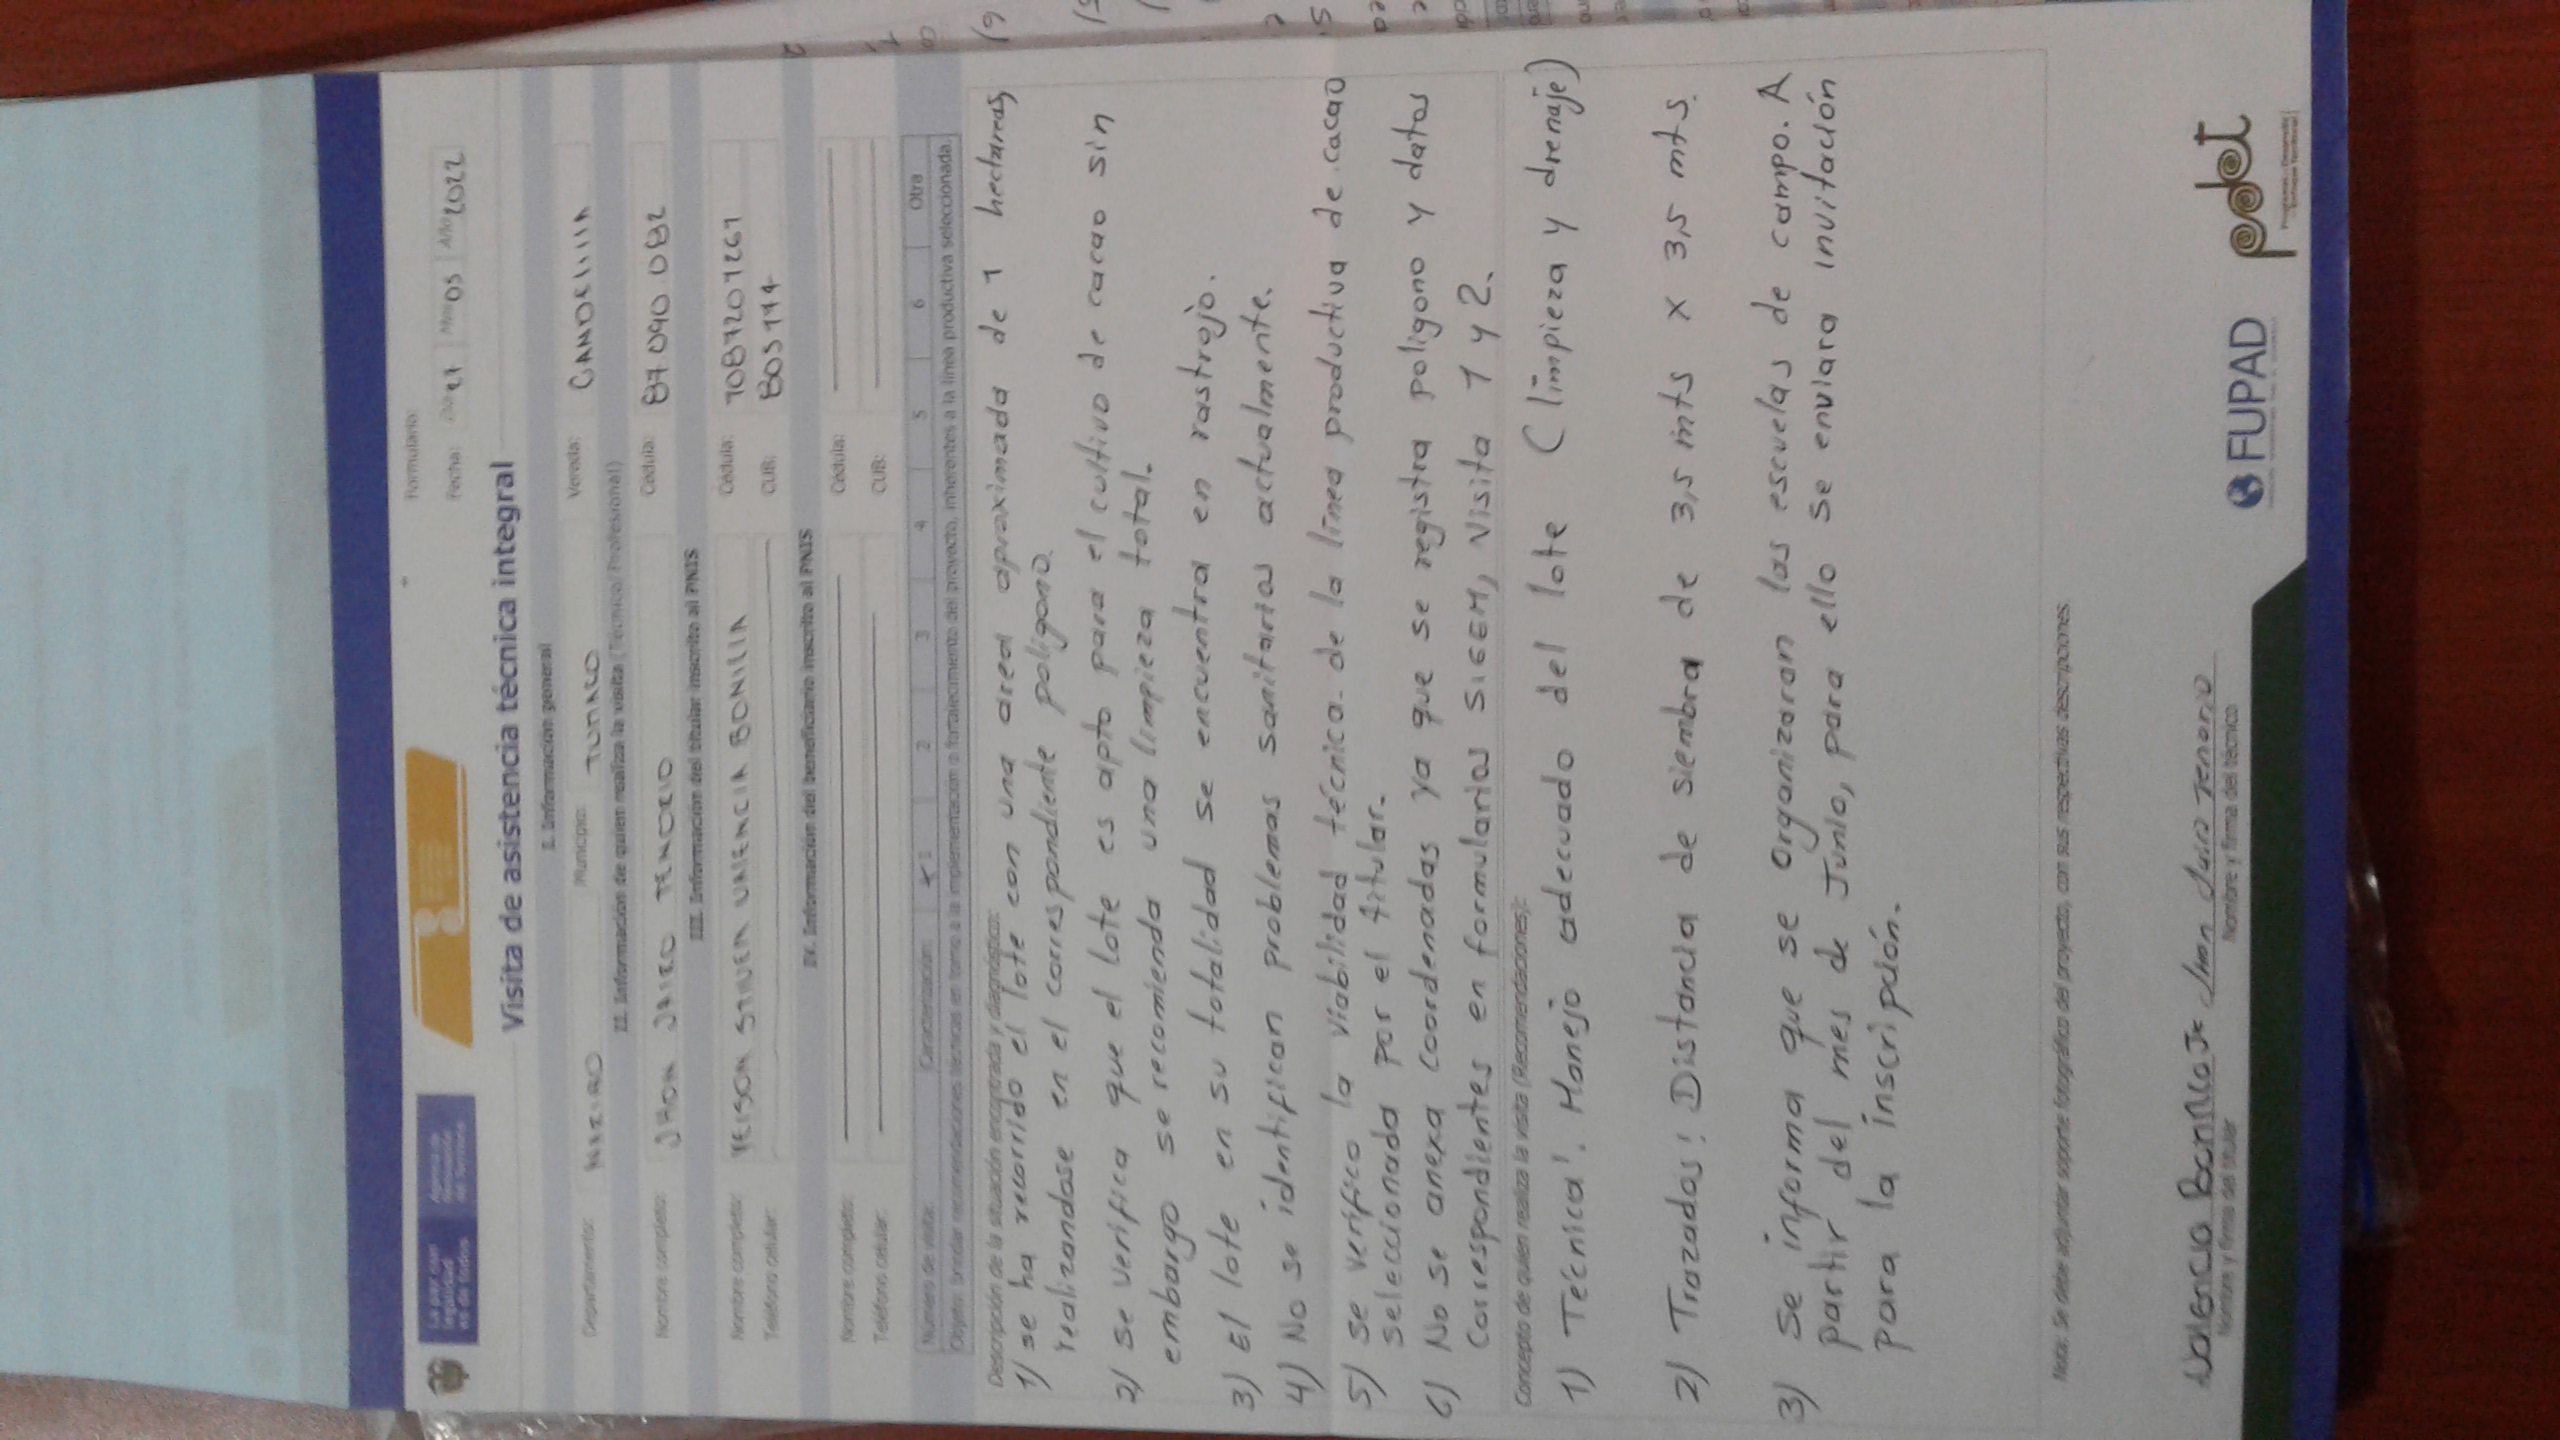 La paz con legalidad es de todos
Agencia de Renovación del Territorio
Formulario:
Fecha: Día 27 Mes 05 Año 2022
Visita de asistencia técnica integral
I. Información general
Departamento: NARIÑO Municipio: TUMACO Vereda: CANDELILLA
II. Información de quien realiza la visita (Técnico/Profesional)
Nombre completo: JHON JAIRO TENORIO Cédula: 87 090 082
III. Información del titular inscrito al PNIS
Nombre completo: YEISON STIVEN VALENCIA BONILLA Cédula: 1087201261
Teléfono celular: CUB:
IV. Información del beneficiario inscrito al PNIS
Nombre completo: Cédula:
Teléfono celular: CUB:
Número de visita: Caracterización: X 1 2 3 4 5 6 Otra
Objeto: brindar recomendaciones técnicas en torno a la implementación o fortalecimiento del proyecto, inherentes a la línea productiva seleccionada.
Descripción de la situación encontrada y diagnóstico:
1) se ha recorrido el lote con una area aproximada de 1 hectareas
realizandose en el correspondiente poligono.
2) se verifica que el lote es apto para el cultivo de cacao sin
embargo se recomienda una limpieza total.
3) El lote en su totalidad se encuentra en rastrojo.
4) No se identifican problemas sanitarios actualmente.
5) se verifico la viabilidad técnica. de la linea productiva de cacao
seleccionada por el titular.
6) No se anexa coordenadas ya que se registra poligono y datos
correspondientes en formularios SIGEM, Visita 1 y 2.
Concepto de quien realiza la visita (Recomendaciones):
1) Técnica: Manejo adecuado del lote (limpieza y drenaje)
2) Trazados: Distancia de siembra de 3,5 mts x 3,5 mts.
3) Se informa que se Organizaran las escuelas de campo. A
partir del mes de Junio, para ello Se enviara invitación
para la inscripción.
Nota: Se debe adjuntar soporte fotográfico del proyecto, con sus respectivas descripciones.
Jhon Jairo Tenorio
Nombre y firma del titular
Nombre y firma del técnico
FUPAD
pdet